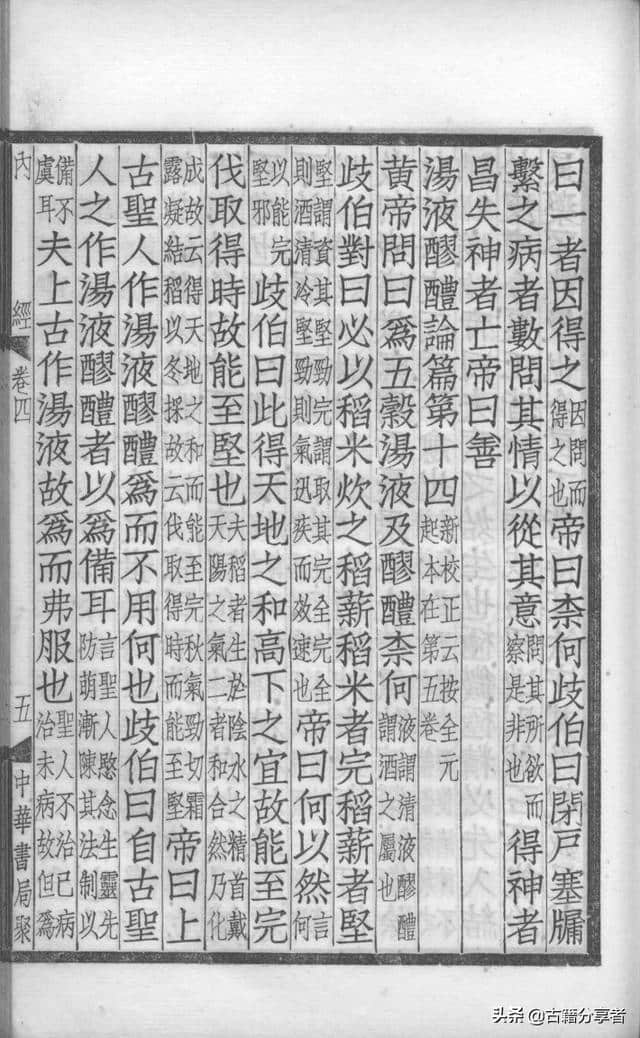 曰一者因得之因問而得之也帝曰柰何歧伯曰閉戸塞牖
繫之病者數問其情以從其意問其所欲而察是非也得神者
昌失神者亡帝曰善
湯液醪醴論篇第十四新校正云按全元起本在第五卷
黃帝問曰爲五穀湯液及醪醴柰何液謂清液醪醴謂酒之屬也
歧伯對曰必以稻米炊之稻薪稻米者完稻薪者堅
堅謂資其堅勁完謂取其完全完全則酒清冷堅勁則氣迅疾而效速也帝曰何以然言何
以能完堅邪歧伯曰此得天地之和高下之宜故能至完
伐取得時故能至堅也夫稻者生於陰水之精首戴天陽之氣二者和合然乃化
成故云得天地之和而能至完秋氣勁切霜露凝結稻以冬採故云伐取得時而能至堅帝曰上
古聖人作湯液醪醴爲而不用何也歧伯曰自古聖
人之作湯液醪醴者以爲備耳言聖人愍念生靈先防萌漸陳其法制以
備不虞耳夫上古作湯液故爲而弗服也聖人不治已病治未病故但爲
內經 卷四 五 中華書局聚
头条 @古籍分享者